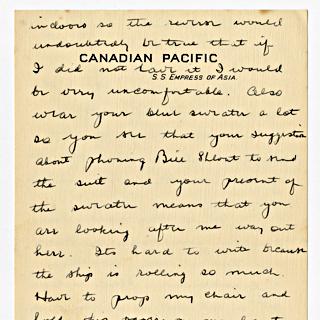 indoors so the reverse would
undoubtedly be true that if
CANADIAN PACIFIC
I did not have it I would
S.S. EMPRESS OF ASIA
be very uncomfortable. Also
wear your blue sweater a lot
so you see that your suggestion
about phoning Bill to send
the suit and your present of
the sweater means that you
are looking after me way out
here. Its hard to write because
the ship is rolling so much.
Have to prop my chair and
hold